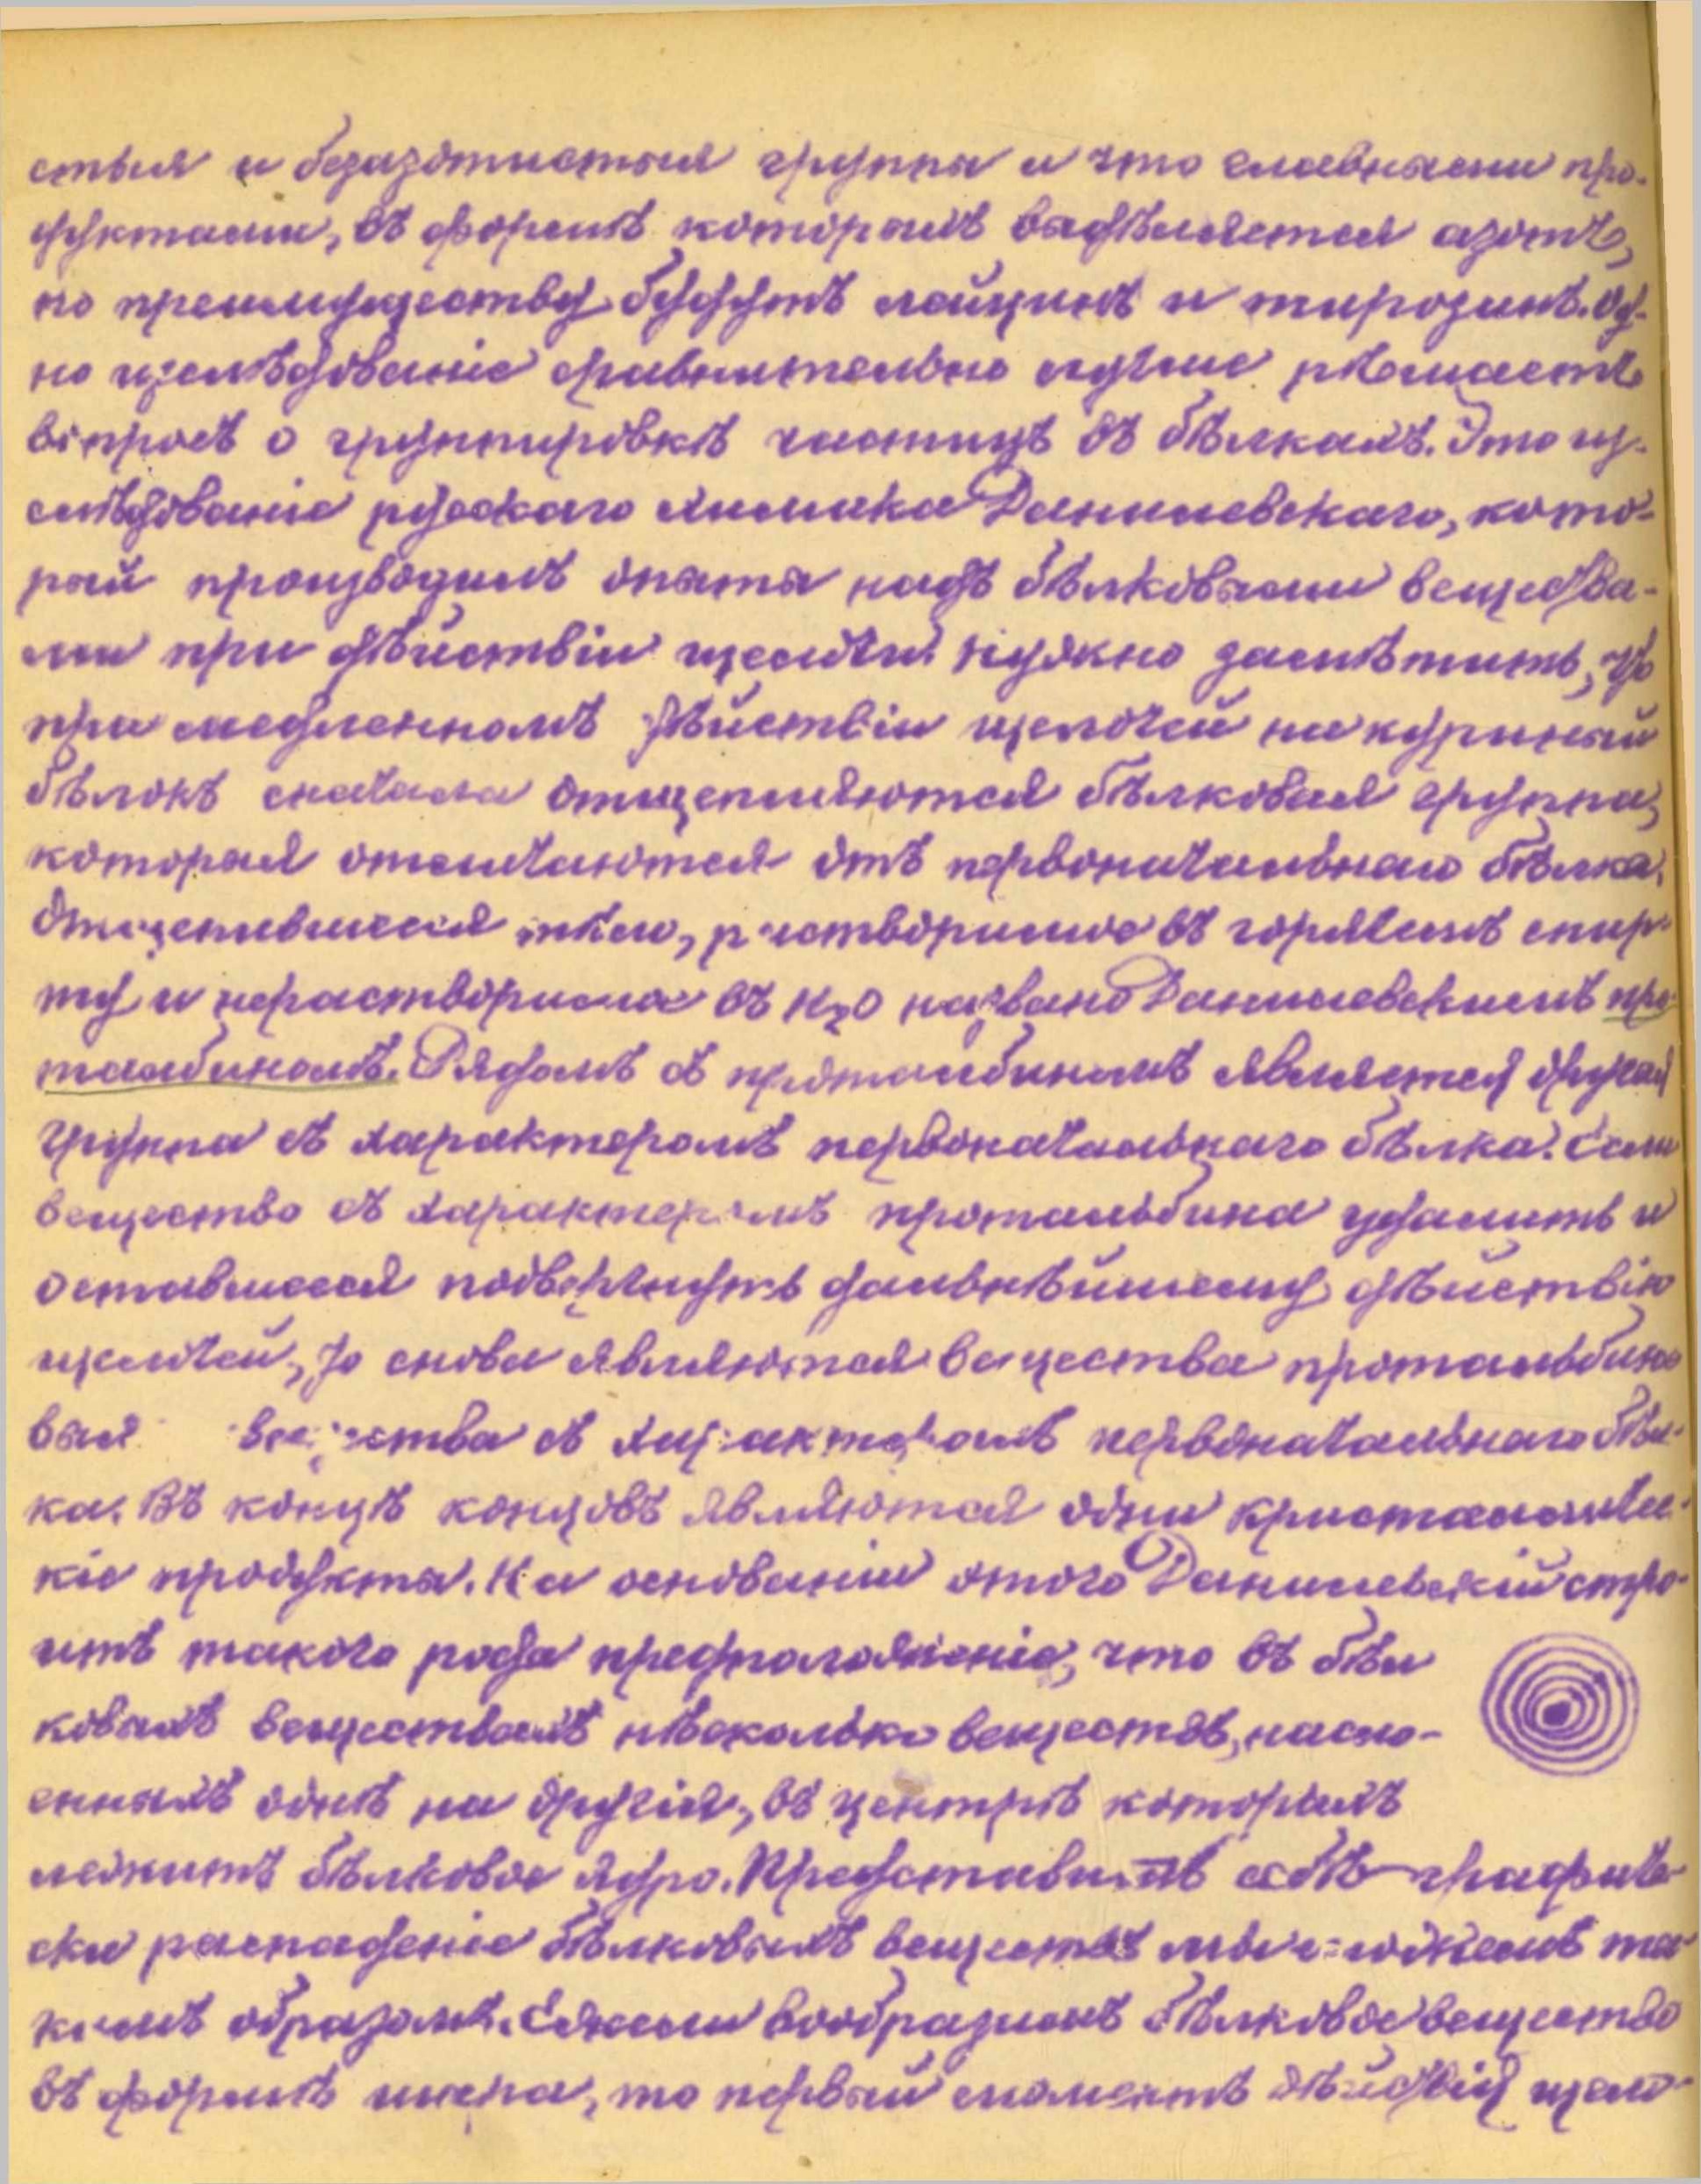 стыя и безазотистыя группы и что главными про-
дуктами, въ формѣ которыхъ выдѣляется азотъ,
по преимуществу будутъ лейцинъ и тирозинъ. Од-
но изслѣдованіе сравнительно лучше рѣшаетъ
вопросъ о группировкѣ частицъ въ бѣлкахъ. Это из-
слѣдованіе русскаго химика Данилевскаго, кото-
рый производилъ опыты надъ бѣлковыми вещества-
ми при дѣйствіи щелочей. Нужно замѣтить, что
при медленномъ дѣйствіи щелочей на куриный
бѣлокъ сначала отщепляются бѣлковая группа,
которая отличаются отъ первоначальнаго бѣлка.
Отщепившееся тѣло, растворимое въ горячемъ спир-
ту и нерастворимое въ H₂O названо Данилевскимъ про-
тальбиномъ. Рядомъ съ протальбиномъ является другая
группа съ характеромъ первоначальнаго бѣлка. Если
вещество съ характеромъ протальбина удалить и
оставшееся подвергнуть дальнѣйшему дѣйствію
щелочей, то снова являются вещества протальбино
выя вещества съ характеромъ первоначальнаго бѣл-
ка. Въ концѣ концовъ являются одни кристалличес-
кіе продукты. На основаніи этого Данилевскій стро-
итъ такого рода предположеніе, что въ бѣл
ковыхъ веществахъ нѣсколько веществъ, насло-
енныхъ однѣ на другія, въ центрѣ которыхъ
лежитъ бѣлковое ядро. Представить себѣ графиче-
ски распаденіе бѣлковыхъ веществъ мы можемъ та-
кимъ образомъ. Ежели вообразимъ бѣлковое вещество
въ формѣ шара, то первый моментъ дѣйствія щело-